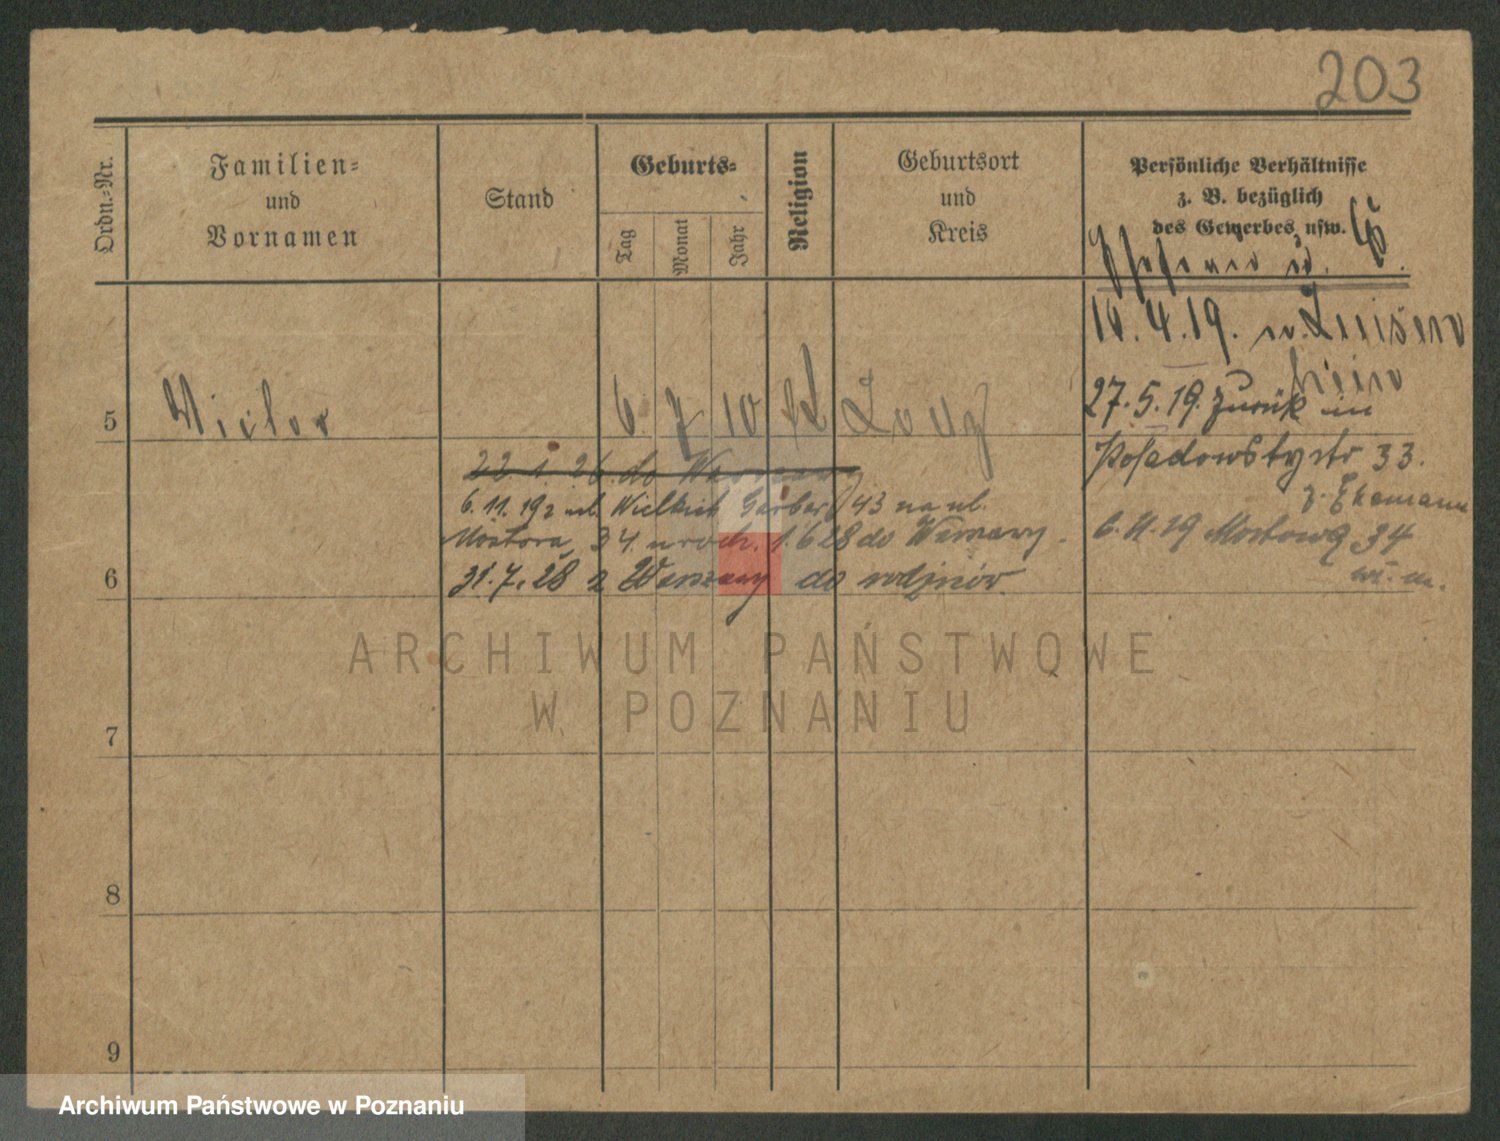 203
Ordn.-Nr.
Familien-
und
Vornamen
Stand
Geburts-
Tag
Monat
Jahr
Religion
Geburtsort
und
Kreis
Persönliche Verhältnisse
z. B. bezüglich
des Gewerbes usw.
14.4.19.
5 Victor 6. 7 10
27.5.19. zurück in
33.
22.1.26. do Warszawy
6.11.19 z ul. Wielkich Garbar 43 na ul.
34 1.6 28 do Warszawy.
6.11.19 Mostowa 34
6
31.7.28 z Warszawy do
ARCHIWUM PAŃSTWOWE
W POZNANIU
7
8
9
Archiwum Państwowe w Poznaniu